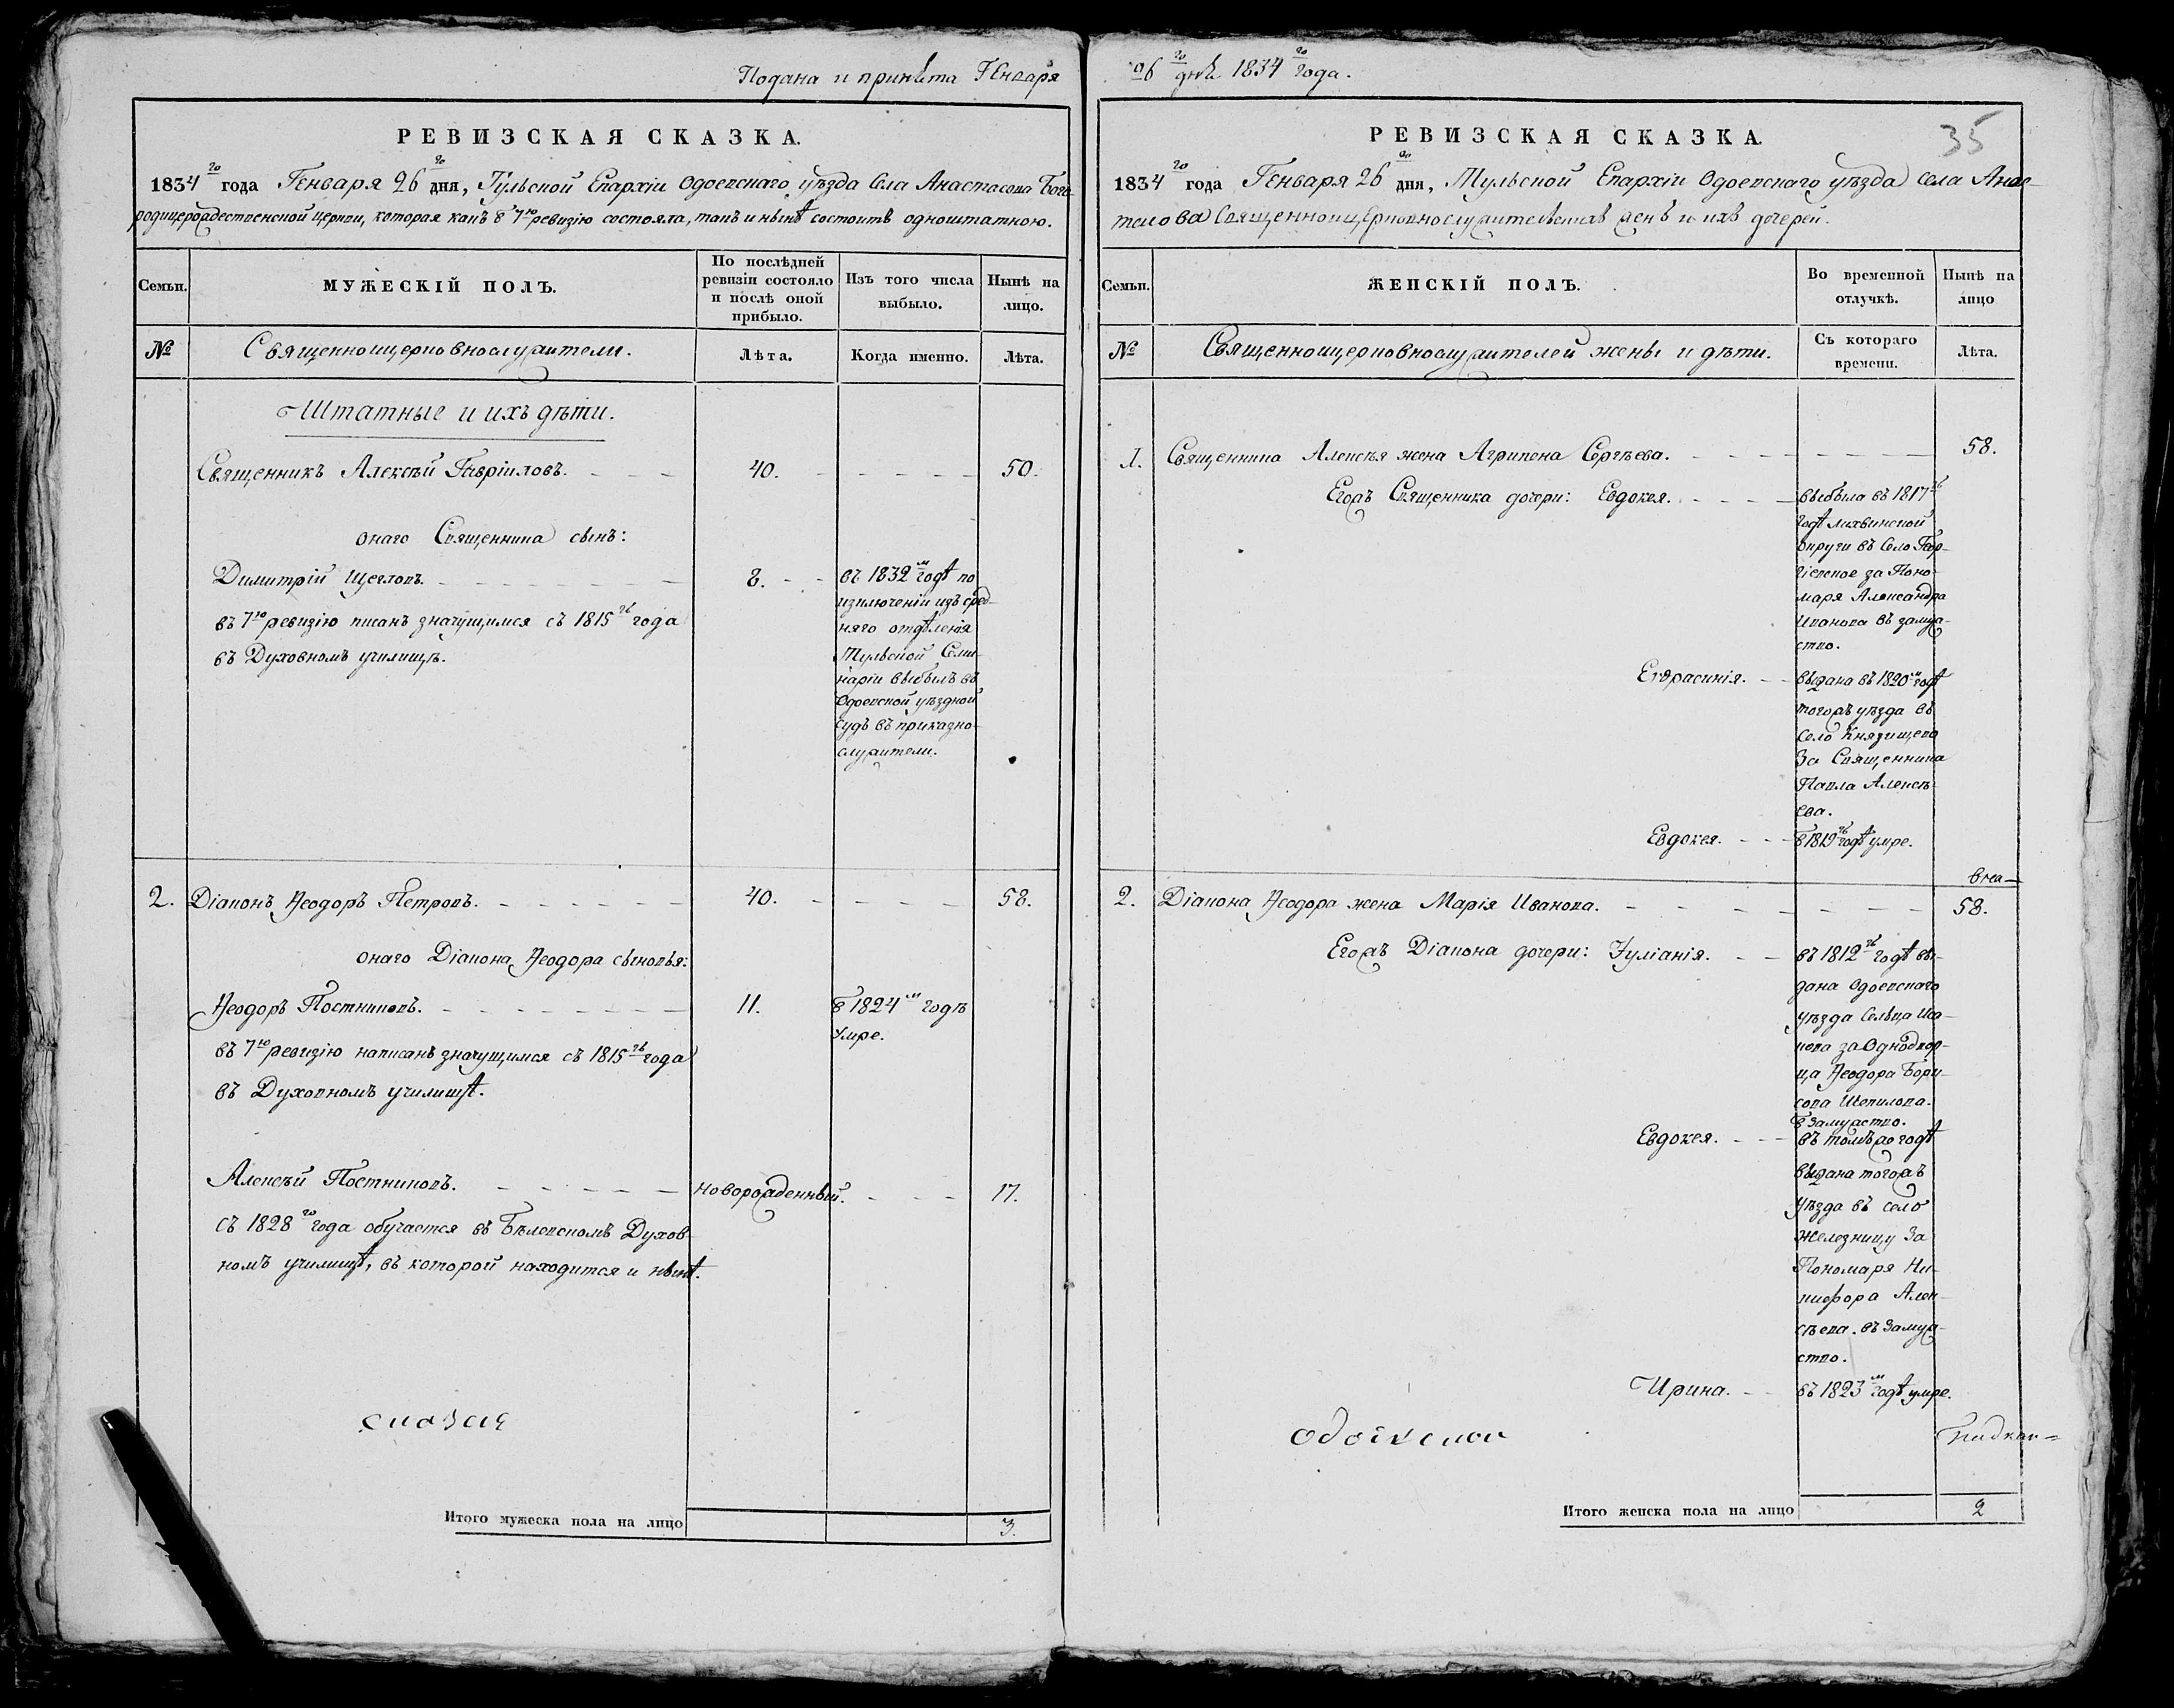 Подана и принята Генваря
26го дня 1834го года.
РЕВИЗСКАЯ СКАЗКА.
1834го года Генваря 26го дня, Тульской Епархіи Одоевскаго уѣзда Села Анастасова Бого-
родицерождественской церкви, которая какъ въ 7ю ревизію состояла, такъ и нынѣ состоитъ одноштатною.
Семьи.
МУЖЕСКІЙ ПОЛЪ.
По послѣдней
ревизіи состояло
и послѣ оной
прибыло.
Изъ того числа
выбыло.
Нынѣ на
лицо.
№
Священноцерковнослужители.
Лѣта.
Когда именно.
Лѣта.
Штатные и ихъ дѣти.
Священникъ Алексѣй Гавріиловъ. 40. 50.
онаго Священника сынъ:
Димитрій Щегловъ. 8.
въ 7ю ревизію писанъ значущимся съ 1815го года
въ Духовномъ училищѣ.
въ 1832м годѣ по
изключеніи изъ сред-
няго отдѣленія
Тульской Семи-
наріи выбылъ въ
Одоевской уѣздной
судъ въ приказно-
служители.
2. Діаконъ Ѳеодоръ Петровъ. 40. 58.
онаго Діакона Ѳеодора сыновья:
Ѳеодоръ Постниковъ. 11.
въ 1824м годѣ
умре.
въ 7ю ревизію написанъ значущимся съ 1815го года
въ Духовномъ училищѣ.
Алексѣй Постниковъ. Новорожденный. 17.
съ 1828го года обучается въ Бѣлевскомъ Духов-
номъ училищѣ, въ которой находится и нынѣ.
сказке
Итого мужеска пола на лицо 3.
35
РЕВИЗСКАЯ СКАЗКА.
1834го года Генваря 26го дня, Тульской Епархіи Одоевскаго уѣзда села Анас-
тасова Священноцерковнослужительскихъ женъ и ихъ дочерей.
Семьи.
ЖЕНСКІЙ ПОЛЪ.
Во временной
отлучкѣ.
Нынѣ на
лицо
№
Священноцерковнослужителей жены и дѣти.
Съ котораго
времени.
Лѣта.
1. Священника Алексѣя жена Агрипена Сергѣева. 58.
Егожъ Священника дочери: Евдокея.
выбыла въ 1817м
годѣ Лихвинской
округи въ Село Геор-
гіевское за Поно-
маря Александра
Иванова въ замуж-
ство.
Евфрасинія.
выдана въ 1820м годѣ
тогожъ уѣзда въ
Село Князищево
За Священника
Павла Алексѣ-
ева.
Евдокея.
въ 1819м годѣ умре.
2. Діакона Ѳеодора жена Марія Иванова. 58.
Егожъ Діакона дочери: Іуліанія.
въ 1812м годѣ вы-
дана Одоевскаго
уѣзда Сельца
за Однодвор-
ца Ѳеодора Бори-
сова Шепилова.
въ Замужство.
Евдокея.
въ томъ же годѣ
выдана тогожъ
уѣзда въ село
Железницу За
Пономаря Ни-
кифора Алек-
сѣева. въ Замуж-
ство.
Ирина.
въ 1823м годѣ умре.
Итого женска пола на лицо 2